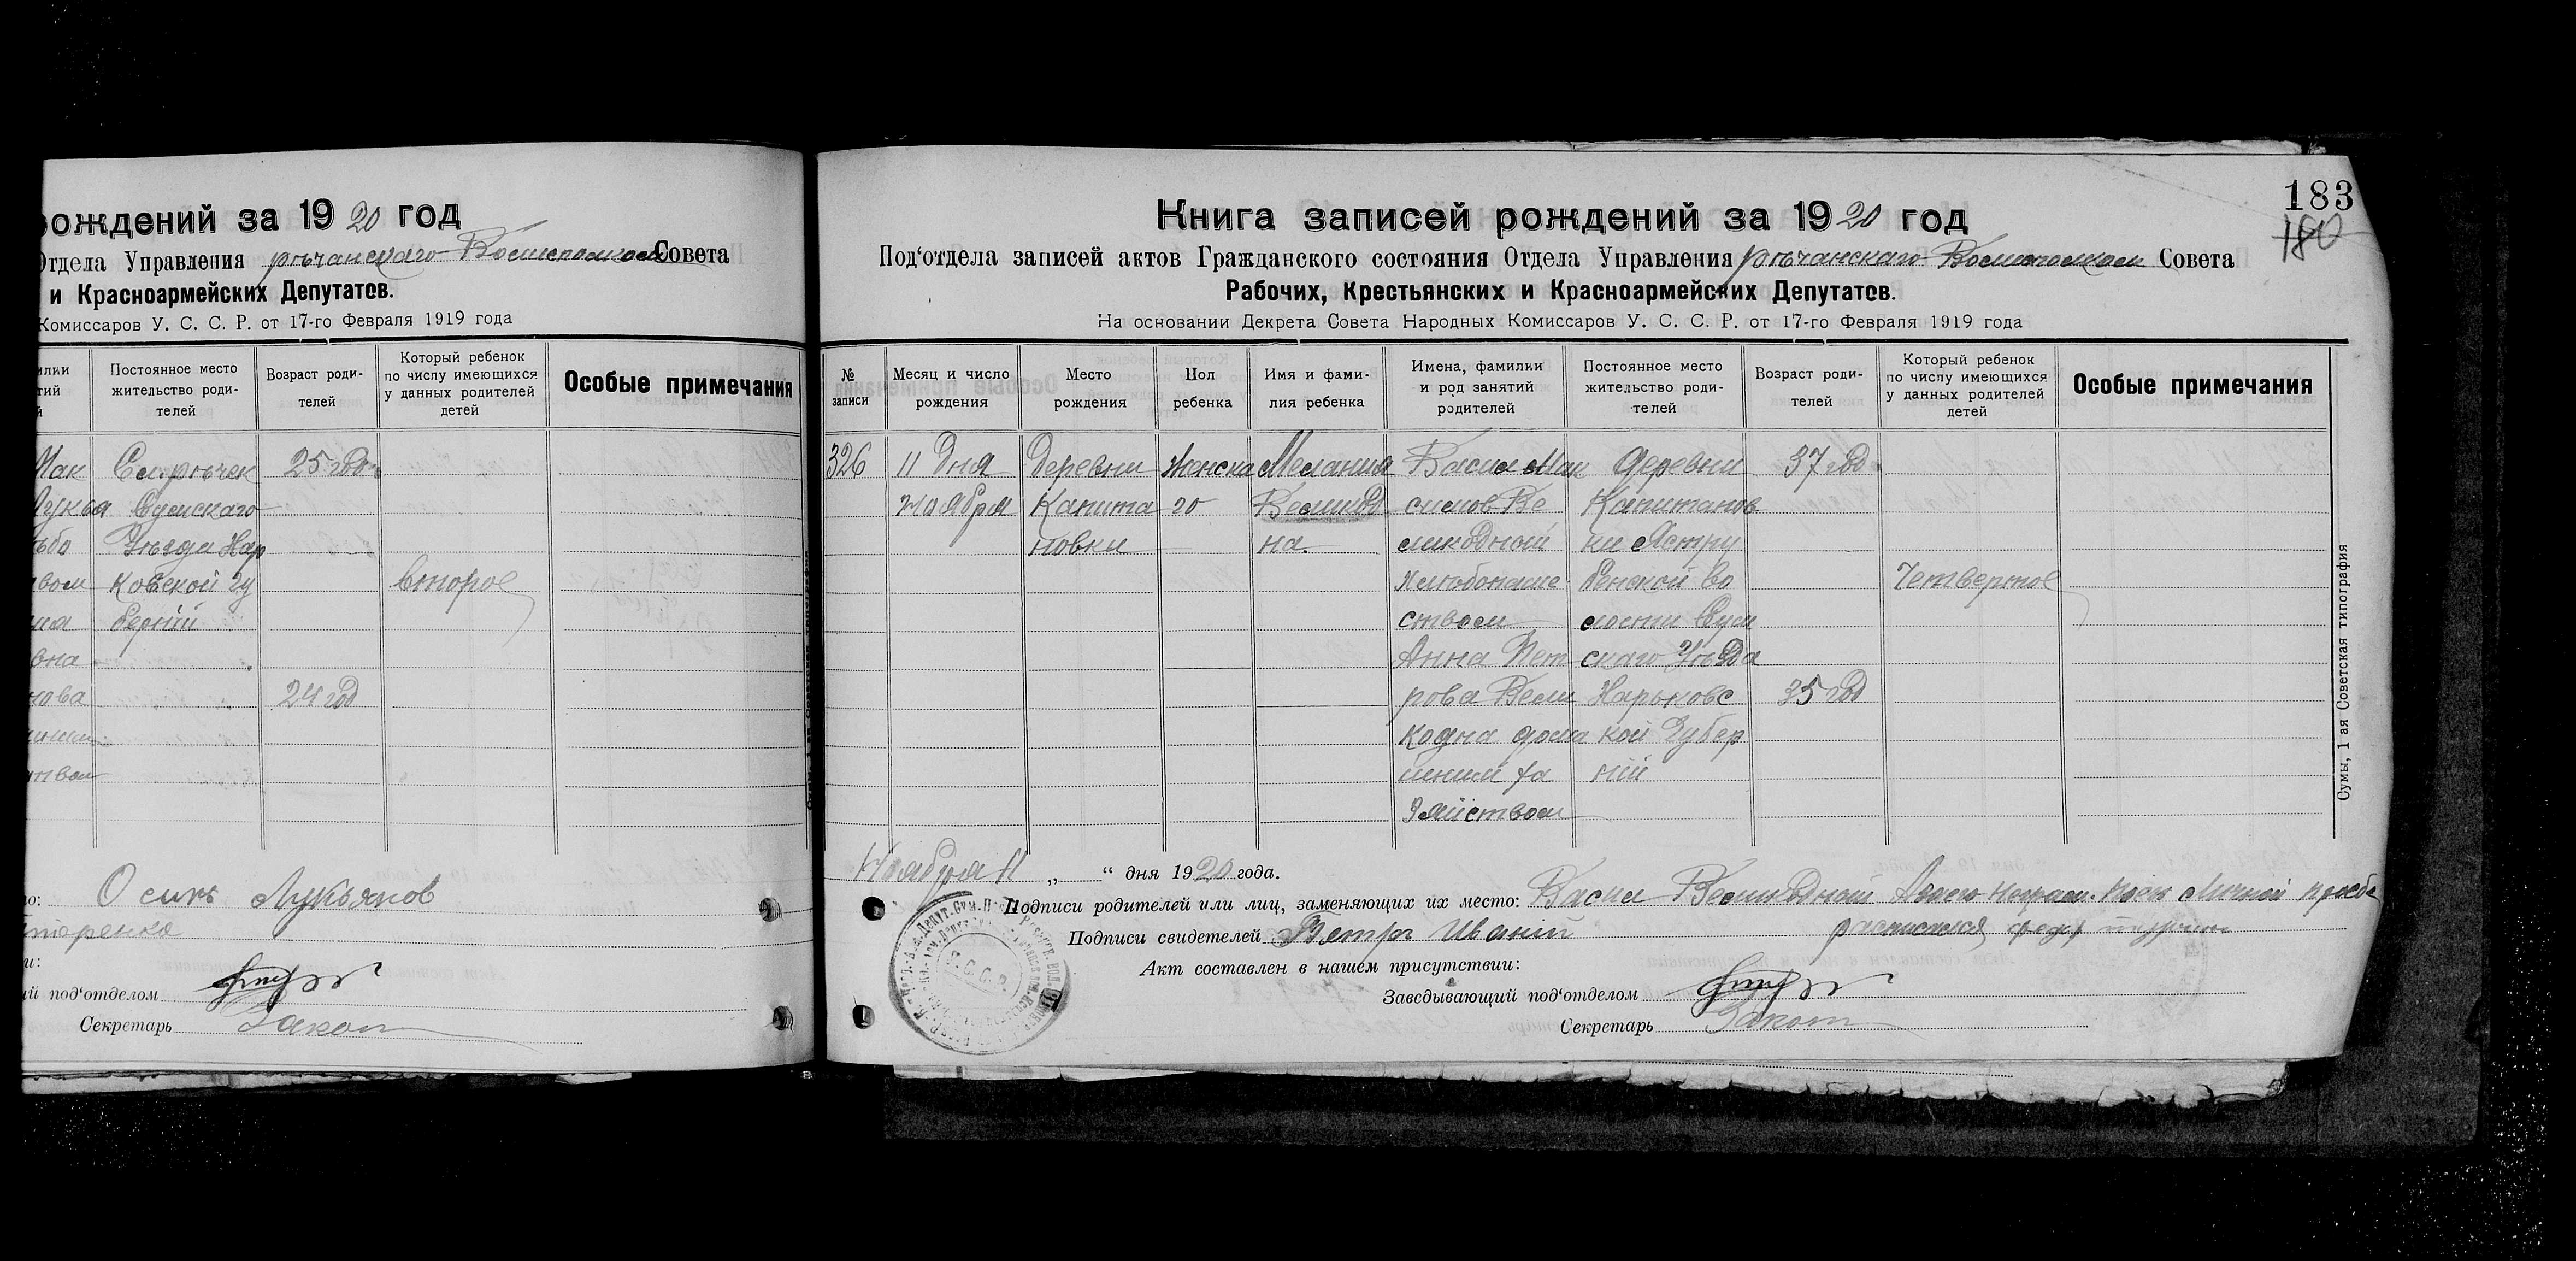 рождений за 1920 год
Отдела Управления рѣчанскаго Волисполком Совета
и Красноармейских Депутатов.
Комиссаров У. С. С. Р. от 17-го Февраля 1919 года
Постоянное место жительство роди-телей
Возраст роди-телей
Который ребенок по числу имеющихся у данных родителей детей
Особые примечания
Мак
Сел. рѣчек
25 год
Сумскаго
Уѣзда Хар
ковской гу
второе
берніи
вна
нова
24 год
Осипъ Лукьянов
ий под‘отделом
Секретарь
183
180
Книга записей рождений за 1920 год
Под‘отдела записей актов Гражданского состояния Отдела Управления рѣчанскаго Волисполком Совета
Рабочих, Крестьянских и Красноармейских Депутатов.
На основании Декрета Совета Народных Комиссаров У. С. С. Р. от 17-го Февраля 1919 года
№ записи
Месяц и число рождения
Место рождения
Пол ребенка
Имя и фами-лия ребенка
Имена, фамилии и род занятий родителей
Постоянное место жительство роди-телей
Возраст роди-телей
Который ребенок по числу имеющихся у данных родителей детей
Особые примечания
326
11 дня
Ноября
деревни
Капита
новки
женска
го
Мелания
Великод
на.
Васил Мак
симов Ве
ликодной
хлебопаше
ством
Анна Пет
рова Вели
кодна дома
шним хо
зяйством
деревни
Капитанов
ки Ястру
бенской во
лости Сум
скаго Уѣзда
Харьковс
кой Губер
нии
37 год
35 год
Четвертое
Ноября 11 „ “ дня 1920 года.
Подписи родителей или лиц, заменяющих их место: Васил Великодной
Подписи свидетелей Петръ Иваній
расписался
Акт составлен в нашем присутствии:
Заведывающий под‘отделом
Секретарь
Сумы, 1 ая Советская типография